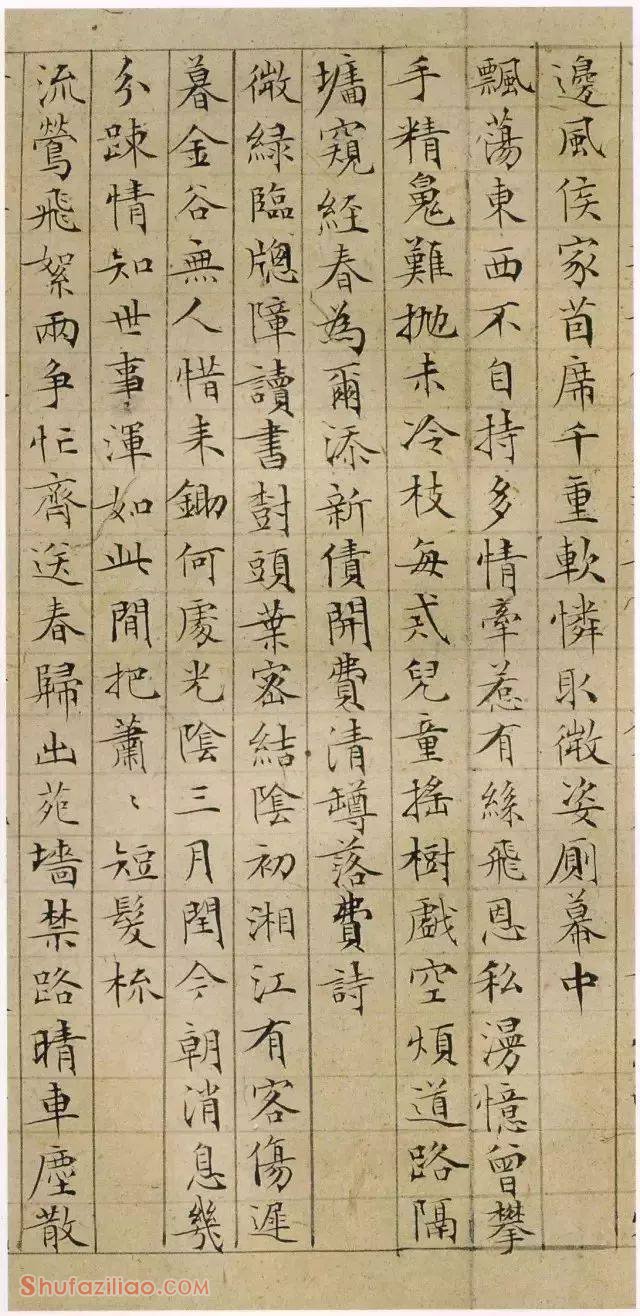 邊風侯家茵席千重軟憐取微姿廁幕中
飄蕩東西不自持多情牽惹有絲飛恩私漫憶曾攀
手精䰟難拋未冷枝每戒兒童搖樹戲空煩道路隔
墉窺経春為爾添新債開費清罇落費詩
微綠臨牕障讀書樹頭葉密結陰初湘江有客傷遲
暮金谷無人惜耒鋤何處光陰三月閏今朝消息幾
分踈情知世事渾如此閒把蕭〻短髮梳
流鶯飛絮兩爭忙齊送春歸出苑墻禁路晴車塵散
Shufaziliao.com